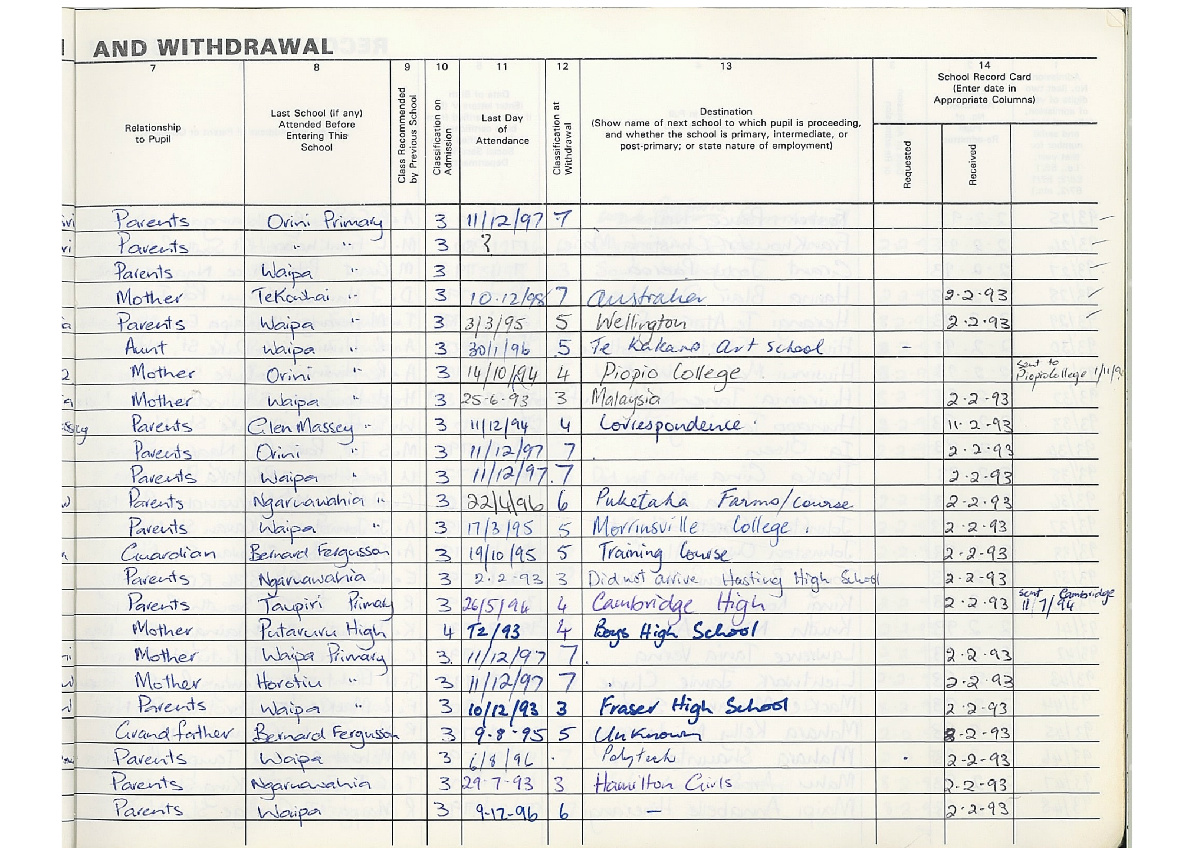 AND WITHDRAWAL
7 8 9 10 11 12 13 14
Relationship to Pupil
Last School (if any) Attended Before Entering This School
Class Recommended by Previous School
Classification on Admission
Last Day of Attendance
Classification at Withdrawal
Destination
(Show name of next school to which pupil is proceeding, and whether the school is primary, intermediate, or post-primary; or state nature of employment)
School Record Card (Enter date in Appropriate Columns)
Requested
Received
Parents Orini Primary 3 11/12/97 7
Parents " " 3 ?
Parents Waipa " 3
Mother TeKowhai " 3 10.12/98 7 Australia 2.2.93
Parents Waipa " 3 3/3/95 5 Wellington 2.2.93
Aunt Waipa " 3 30/1/96 5 Te Kakano Art School -
Mother Orini " 3 14/10/94 4 Piopio College sent to Piopio College 1/11/9
Mother Waipa " 3 25-6-93 3 Malaysia 2.2.93
Parents Glen Massey " 3 11/12/94 4 Correspondence 11.2.93
Parents Orini " 3 11/12/97 7 2.2.93
Parents Waipa " 3 11/12/97 7 2.2.93
Parents Ngaruawahia " 3 22/4/96 6 Puketaha Farms/course 2.2.93
Parents Waipa " 3 17/3/95 5 Morrinsville College 2.2.93
Guardian Bernard Fergusson 3 19/10/95 5 Training Course 2.2.93
Parents Ngaruawahia 3 2-2-93 3 Did not arrive Hasting High School 2.2.93
Parents Taupiri Primary 3 26/5/94 4 Cambridge High 2.2.93 sent Cambridge 11/7/94
Mother Putaruru High 4 T2/93 4 Boys High School
Mother Waipa Primary 3 11/12/97 7 2.2.93
Mother Horotiu " 3 11/12/97 7 2.2.93
Parents Waipa " 3 10/12/93 3 Fraser High School 2.2.93
Grandfather Bernard Fergusson 3 9-8-95 5 Unknown 2-2-93
Parents Waipa 3 6/8/96 Polytech 2-2-93
Parents Ngaruawahia 3 29-7-93 3 Hamilton Girls 2-2-93
Parents Waipa 3 9-12-96 6 — 2-2-93